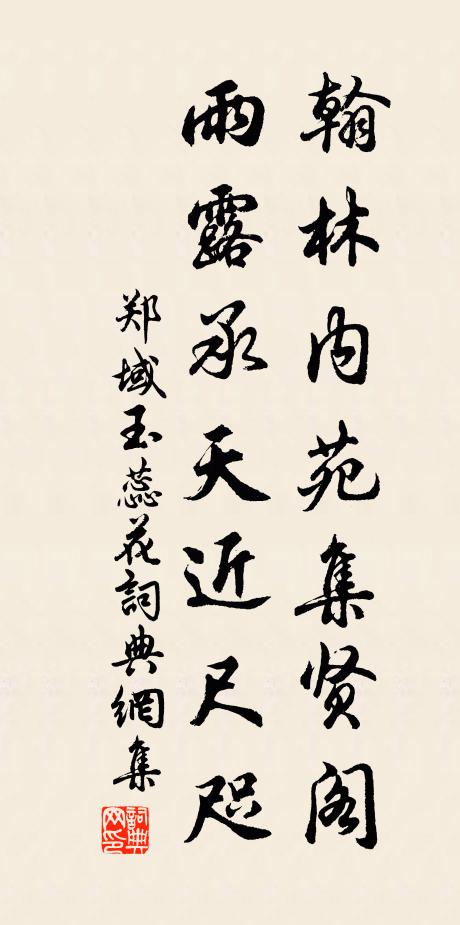 翰林内苑集贤阁
雨露承天近尺咫
郑域玉蕊花詞典網集
詞典
网印